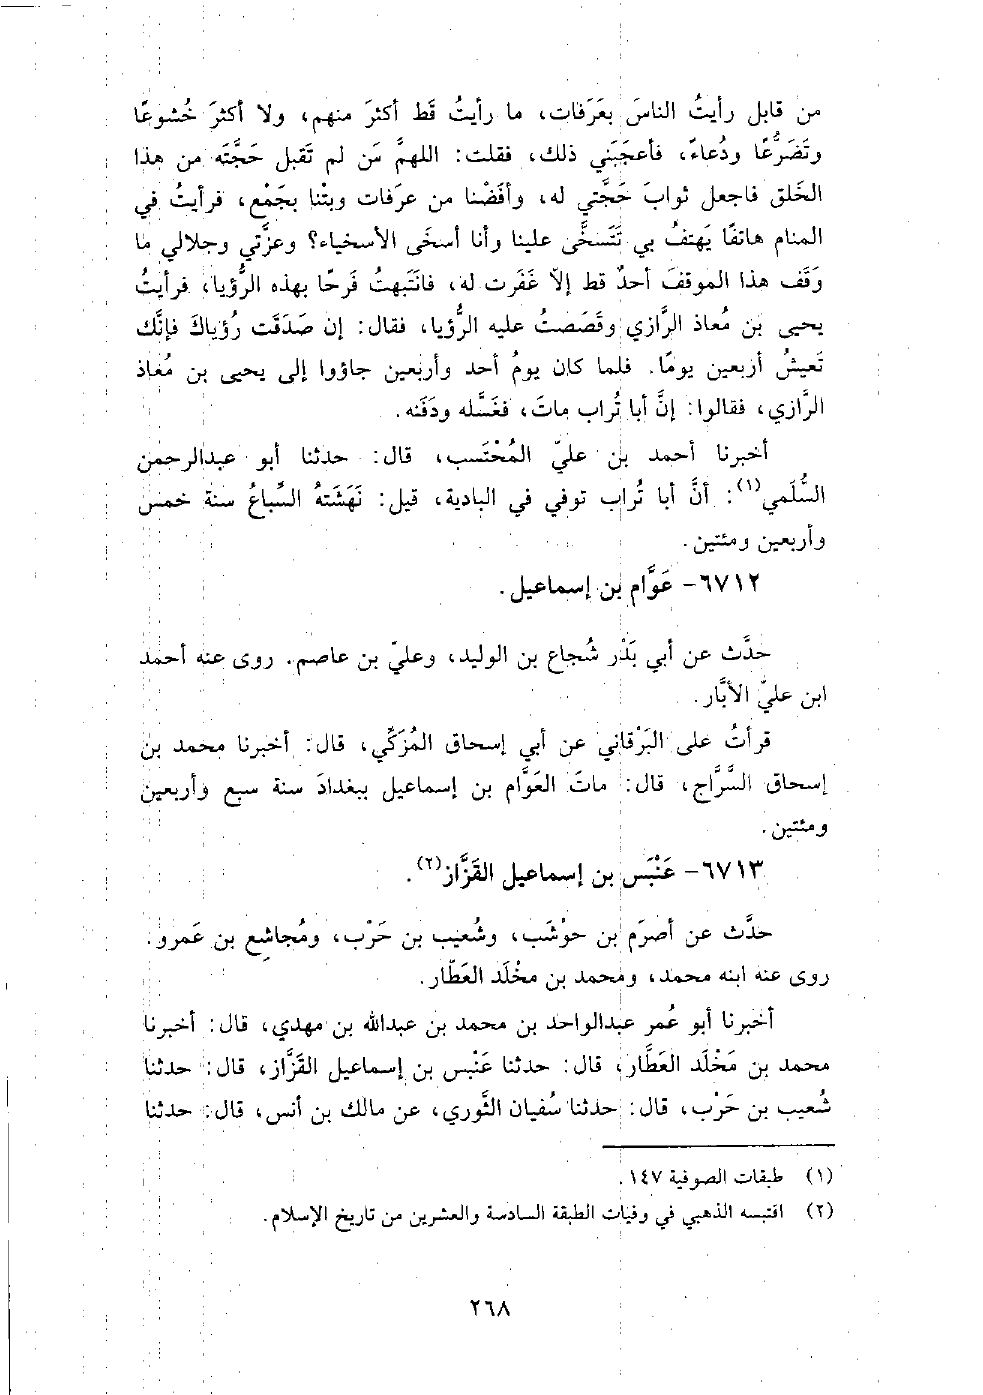 من قابل رأيتُ الناسَ بعَرَفات، ما رأيتُ قَط أكثرَ منهم، ولا أكثرَ خُشوعًا
وتَضَرُّعًا ودُعاءً، فأعجَبَني ذلك، فقلت: اللهمَّ مَن لم تَقبل حَجَّته من هذا
الخَلق فاجعل ثوابَ حَجَّتي له، وأفَضْنا من عرَفات وبتْنا بجَمْع، فرأيتُ في
المنام هاتفًا يَهتفُ بي تَتَسخَّى علينا وأنا أسخَى الأسخياء؟ وعزَّتي وجلالي ما
وَقَف هذا الموقفَ أحدٌ قط إلاّ غَفَرت له، فانتَبهتُ فَرحًا بهذه الرُّؤيا، فرأيتُ
يحيى بن مُعاذ الرَّازي وقَصَصتُ عليه الرُّؤيا، فقال: إن صَدَقَت رُؤياكَ فإنَّك
تَعيشُ أربعين يومًا. فلما كان يومُ أحد وأربعين جاؤوا إلى يحيى بن مُعاذ
الرَّازي، فقالوا: إنَّ أبا تُراب ماتَ، فغَسَّله ودَفَنه.
أخبرنا أحمد بن عليّ المُحْتَسب، قال: حدثنا أبو عبدالرحمن
السُّلَمي(١): أنَّ أبا تُراب توفي في البادية، قيل: نَهَشَتهُ السِّباعُ سنة خمس
وأربعين ومئتين.
٦٧١٢- عَوَّام بن إسماعيل.
حدَّث عن أبي بَدْر شُجاع بن الوليد، وعليّ بن عاصم. روى عنه أحمد
ابن عليّ الأبَّار.
قرأتُ على البَرْقاني عن أبي إسحاق المُزَكِّي، قال: أخبرنا محمد بن
إسحاق السَّرَّاج، قال: ماتَ العَوَّام بن إسماعيل ببغدادَ سنة سبع وأربعين
ومئتين.
٦٧١٣- عَنْبَس بن إسماعيل القَزَّاز(٢).
حدَّث عن أصرَم بن حوْشَب، وشُعيب بن حَرْب، ومُجاشِع بن عَمرو.
روى عنه ابنه محمد، ومحمد بن مخْلَد العَطَّار.
أخبرنا أبو عُمر عبدالواحد بن محمد بن عبدالله بن مهدي، قال: أخبرنا
محمد بن مَخْلَد العَطَّار، قال: حدثنا عَنْبس بن إسماعيل القَزَّاز، قال: حدثنا
شُعيب بن حَرْب، قال: حدثنا سُفيان الثَّوري، عن مالك بن أنس، قال: حدثنا
(١) طبقات الصوفية ١٤٧.
(٢) اقتبسه الذهبي في وفيات الطبقة السادسة والعشرين من تاريخ الإسلام.
٢٦٨